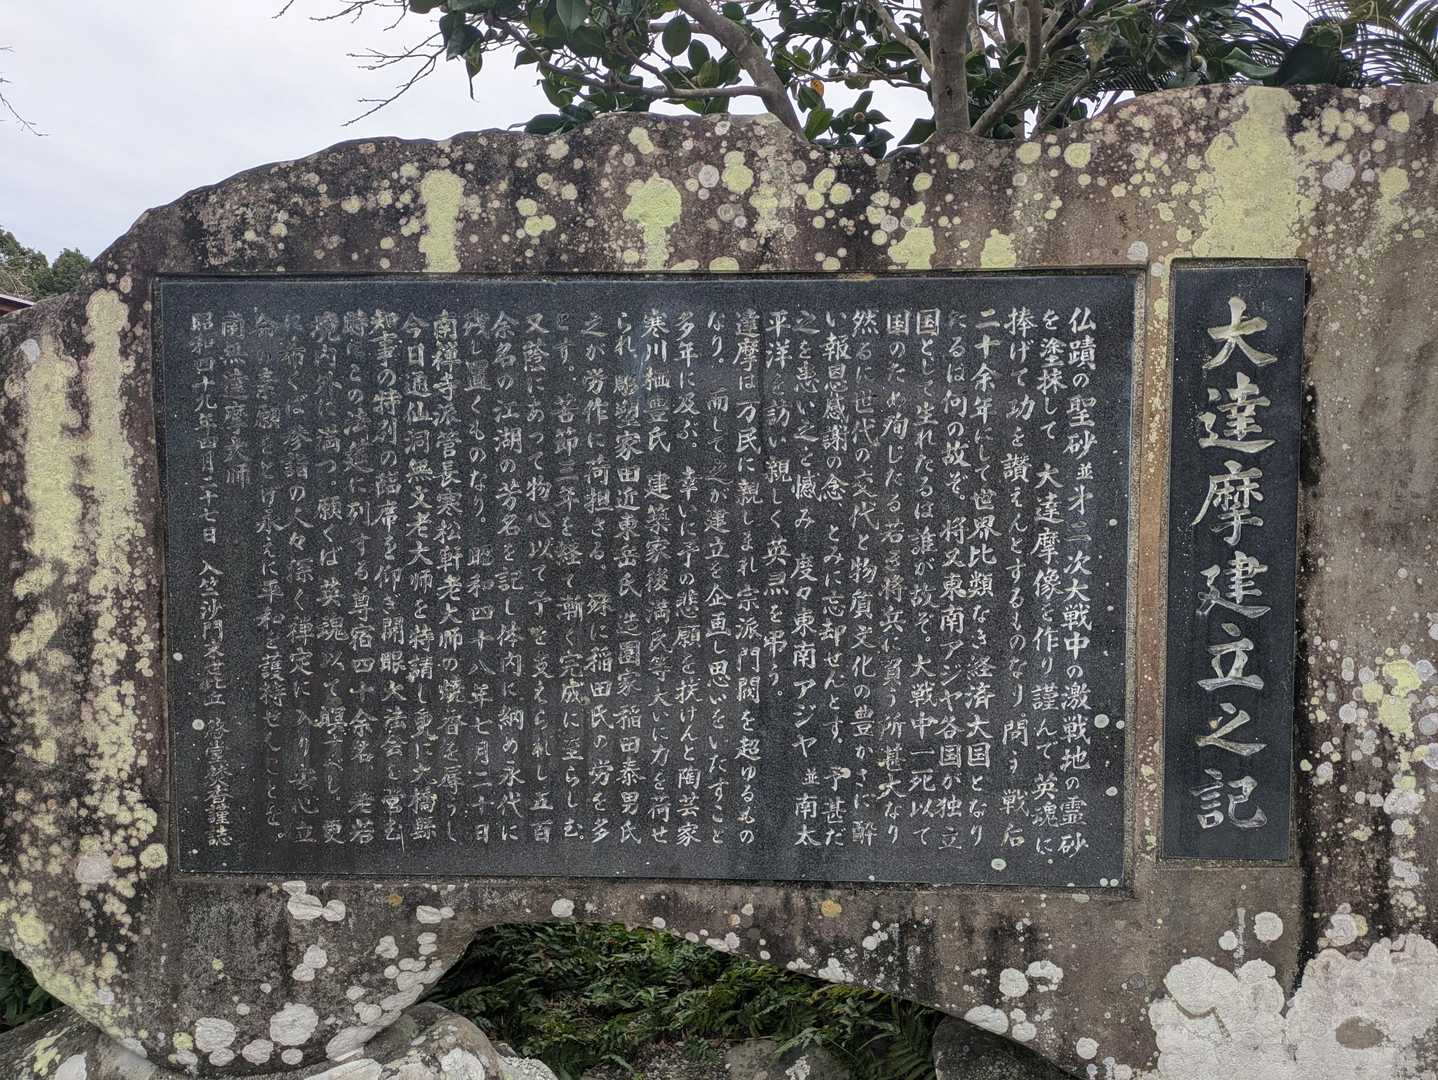 大達摩建立之記
仏蹟の聖砂並才二次大戦中の激戦地の霊砂
を塗抹して 大達摩像を作り謹んで英魂に
捧げて功を讃えんとするものなり 問す戦后
二十余年にして世界比類なき経済大国となり
たるは何の故ぞ。将又東南アジヤ各国が独立
国として生れたるは誰が故ぞ。大戦中一死以て
国のため殉じたる若き将兵に負う所甚大なり
然るに世代の交代と物質文化の豊かさに酔
い報恩感謝の念 とみに忘却せんとす。予甚だ
之を患い之を憾み 度々東南アジヤ並南太
平洋を訪い親しく英烈を弔う。
達摩は万民に親しまれ宗派門閥を超ゆるもの
なり。而して之が建立を企画し思いをいたすこと
多年に及ぶ。幸いに予の悲願を扶けんと陶芸家
寒川栖豊氏 建築家後満氏等大いに力を荷せ
られ、彫塑家田近東岳氏 造園家稲田泰男氏
之が労作に荷担さる。殊に稲田氏の労を多
とす。苦節三年を経て漸く完成に至らしむ。
又蔭にあって物心以て予を支えられし五百
余名の江湖の芳名を記し体内に納め永代に
残し置くものなり。昭和四十八年七月二十日
南禅寺派管長寒松軒老大师の焼香を辱うし
今日通仙洞無文老大师を特請し更に大橋縣
知事の特別の臨席を仰ぎ開眼大法会を営む
時にこの法筵に列する尊宿四十余名 老若
境内外に満つ。願くは英魂以て瞑すべし。更
に希くば参詣の人々深く禅定に入り安心立
命の素願をとげ永えに平和を護持せんことを。
南無達摩大师
昭和四十九年四月二十七日 入竺沙門
謹誌